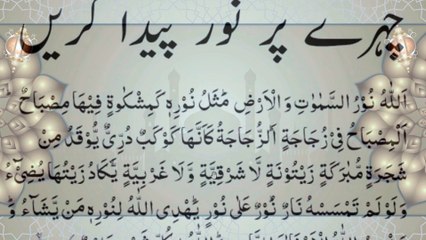 چہرے پر نور پیدا کریں
اَللّٰهُ نُوْرُ السَّمٰوٰتِ وَالْاَرْضِ مَثَلُ نُوْرِهٖ كَمِشْكٰوةٍ فِيْهَا مِصْبَاحٌ
اَلْمِصْبَاحُ فِيْ زُجَاجَةٍ اَلزُّجَاجَةُ كَاَنَّهَا كَوْكَبٌ دُرِّيٌّ يُّوْقَدُ مِنْ
شَجَرَةٍ مُّبٰرَكَةٍ زَيْتُوْنَةٍ لَّا شَرْقِيَّةٍ وَّلَا غَرْبِيَّةٍ يَّكَادُ زَيْتُهَا يُضِيْٓءُ
وَلَوْ لَمْ تَمْسَسْهُ نَارٌ نُوْرٌ عَلٰى نُوْرٍ يَهْدِى اللّٰهُ لِنُوْرِهٖ مَنْ يَّشَآءُ وَ